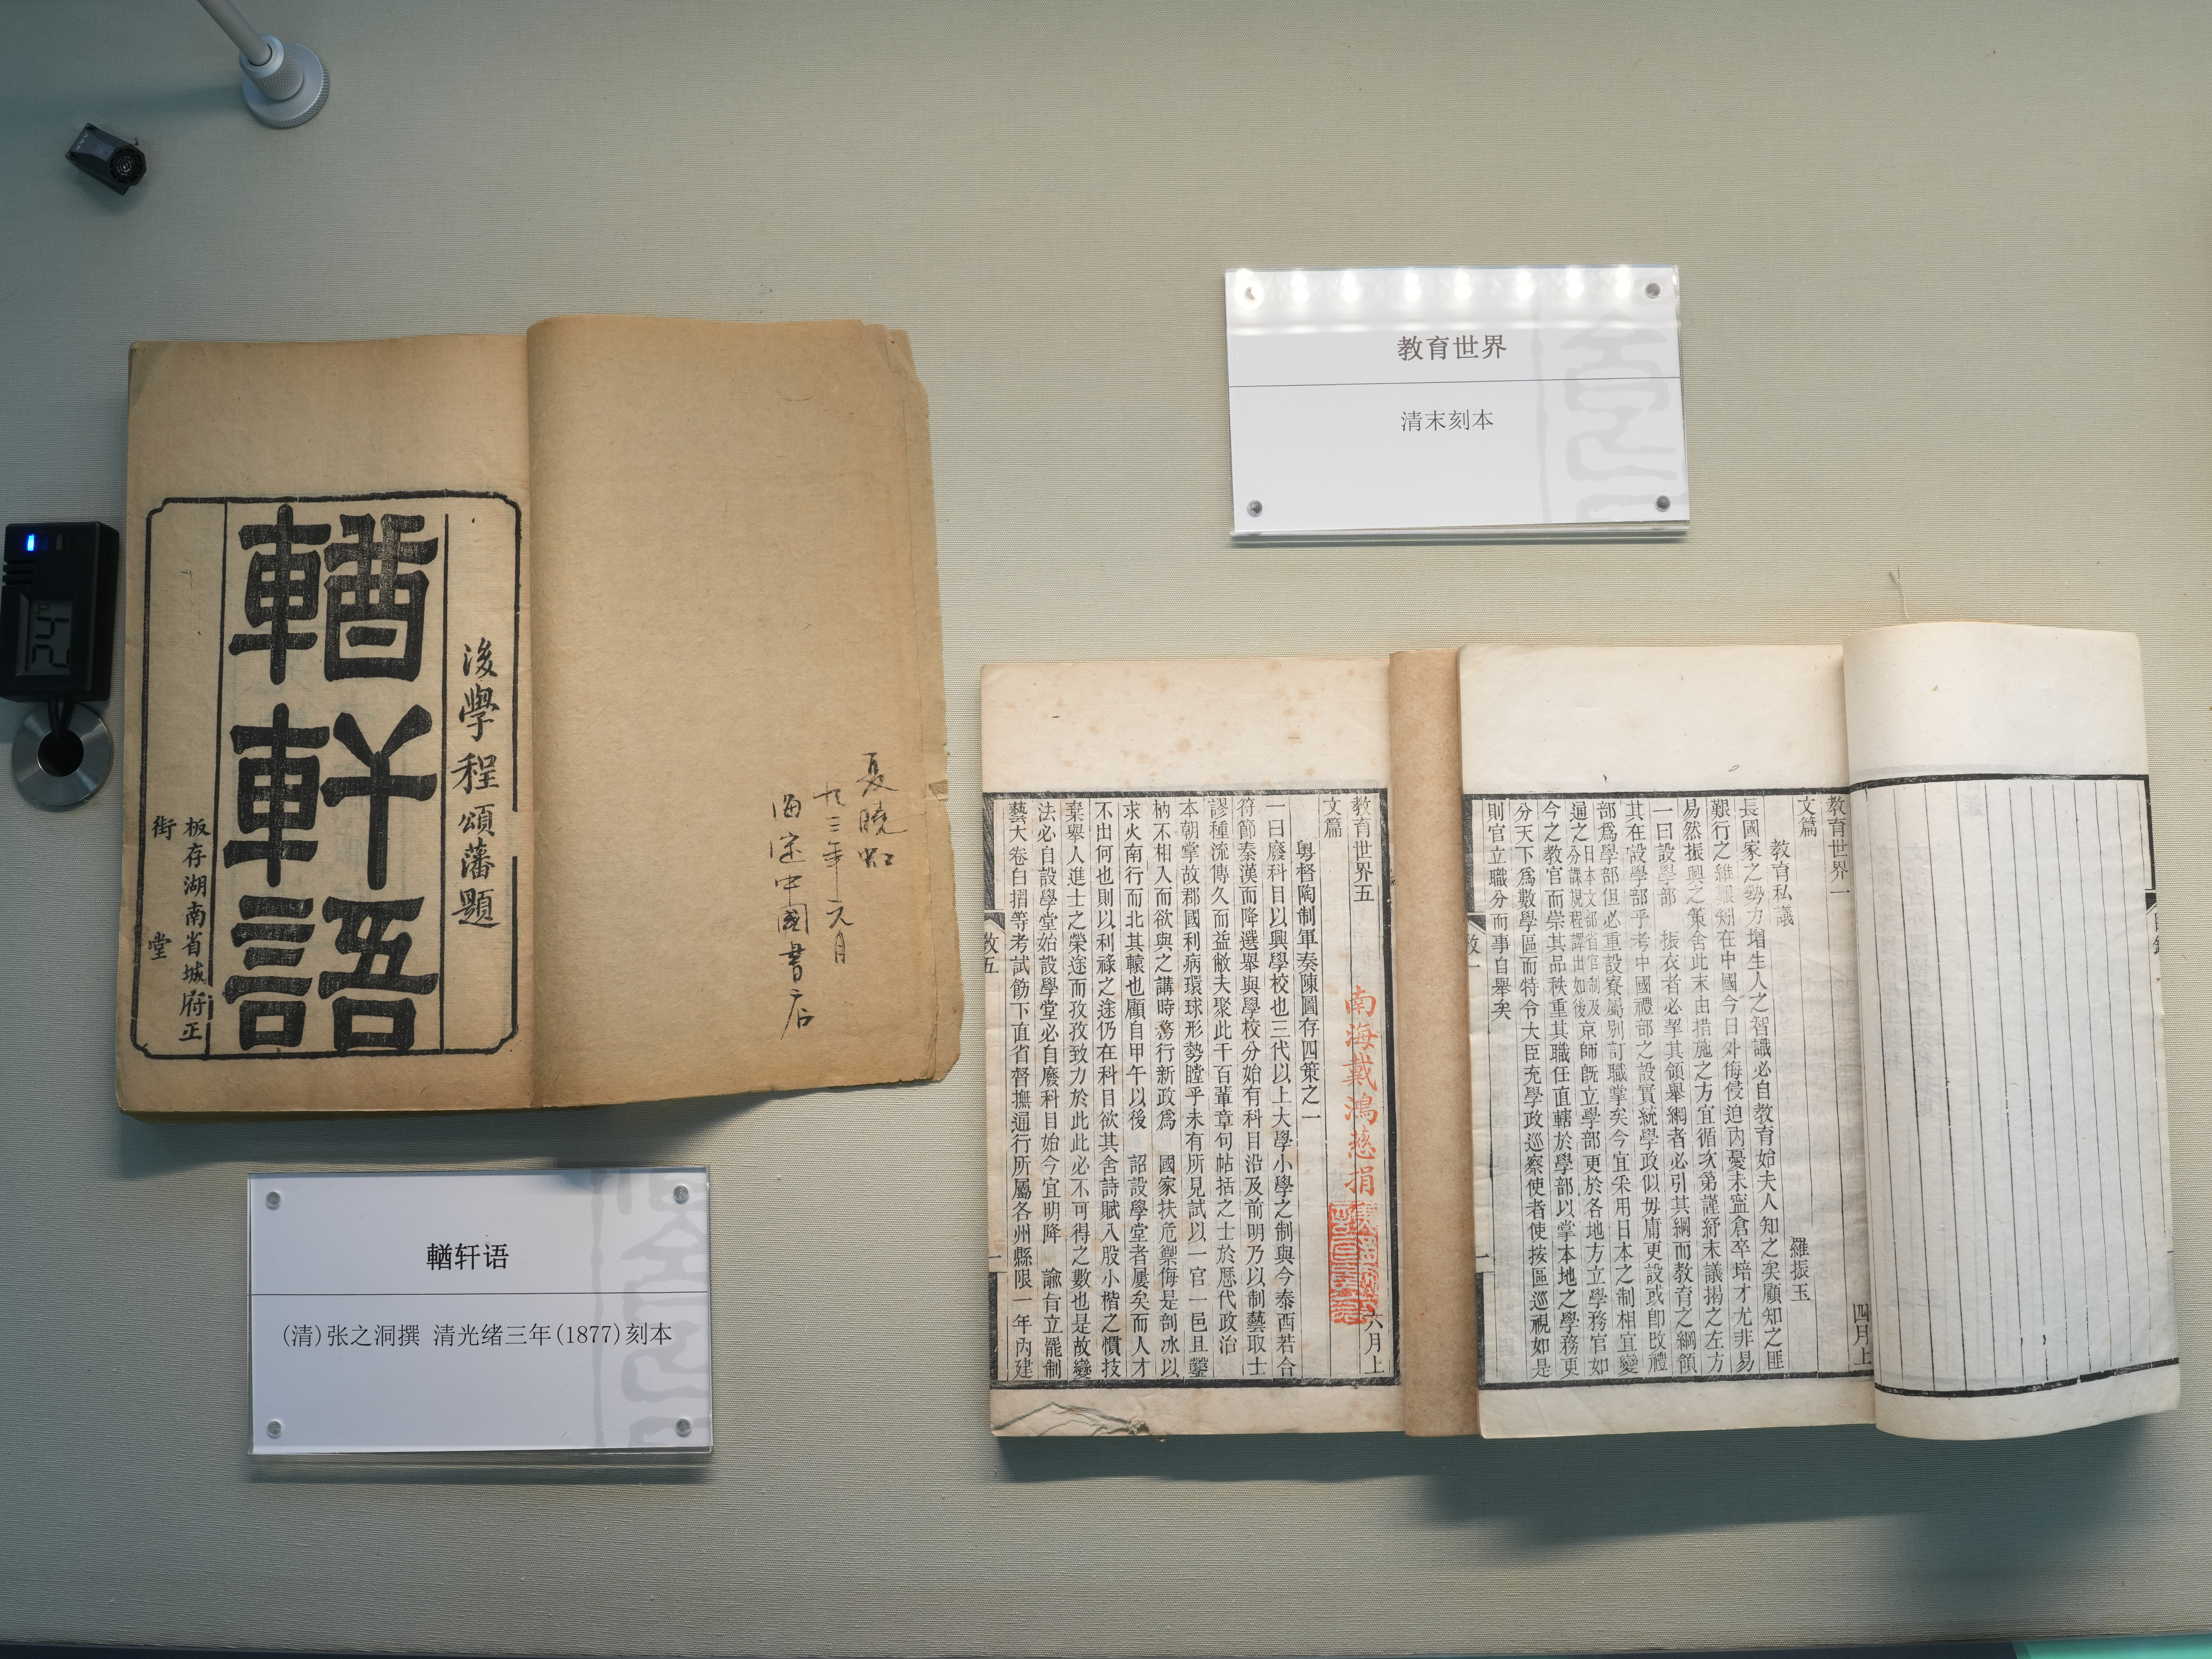 後學程頌藩題
輶軒語
板存湖南省城府正
街
堂
夏曉虹
九三年元月
海淀中國書店
輶轩语
(清)张之洞撰 清光绪三年(1877)刻本
教育世界
清末刻本
教育世界一
四月上
文篇
教育私議
羅振玉
長國家之勢力增生人之智識必自教育始夫人知之矣顧知之匪
艱行之維艱矧在中國今日外侮侵迫內憂未寍倉卒培才尤非易
易然振興之策舍此末由措施之方宜循次第謹紓末議揭之左方
一曰設學部 振衣者必挈其領舉網者必引其綱而教育之綱領
其在設學部乎考中國禮部之設實統學政似毋庸更設或卽改禮
部爲學部但必重設寮屬別訂職掌矣今宜采用日本之制相宜變
通之日本文部省官制及分課規程譯出如後京師旣立學部更於各地方立學務官如
今之教官而崇其品秩重其職任直轄於學部以掌本地之學務更
分天下爲數學區而特令大臣充學政巡察使者使按區巡視如是
則官立職分而事自舉矣
教一
一
教育世界五
六月上
文篇
南海戴鴻慈捐
粵督陶制軍奏陳圖存四策之一
一曰廢科目以興學校也三代以上大學小學之制與今泰西若合
符節秦漢而降選舉與學校分始有科目沿及前明乃以制藝取士
謬種流傳久而益敝夫聚此千百輩章句帖括之士於歷代政治
本朝掌故郡國利病環球形勢瞠乎未有所見試以一官一邑且鑿
枘不相入而欲與之講時務行新政爲 國家扶危禦侮是剖冰以
求火南行而北其轅也顧自甲午以後 詔設學堂者屢矣而人才
不出何也則以利祿之途仍在科目欲其舍詩賦入股小楷之慣技
棄舉人進士之榮途而孜孜致力於此此必不可得之數也是故變
法必自設學堂始設學堂必自廢科目始今宜明降 諭旨立罷制
藝大卷白摺等考試飭下直省督撫通行所屬各州縣限一年內建
教五
一